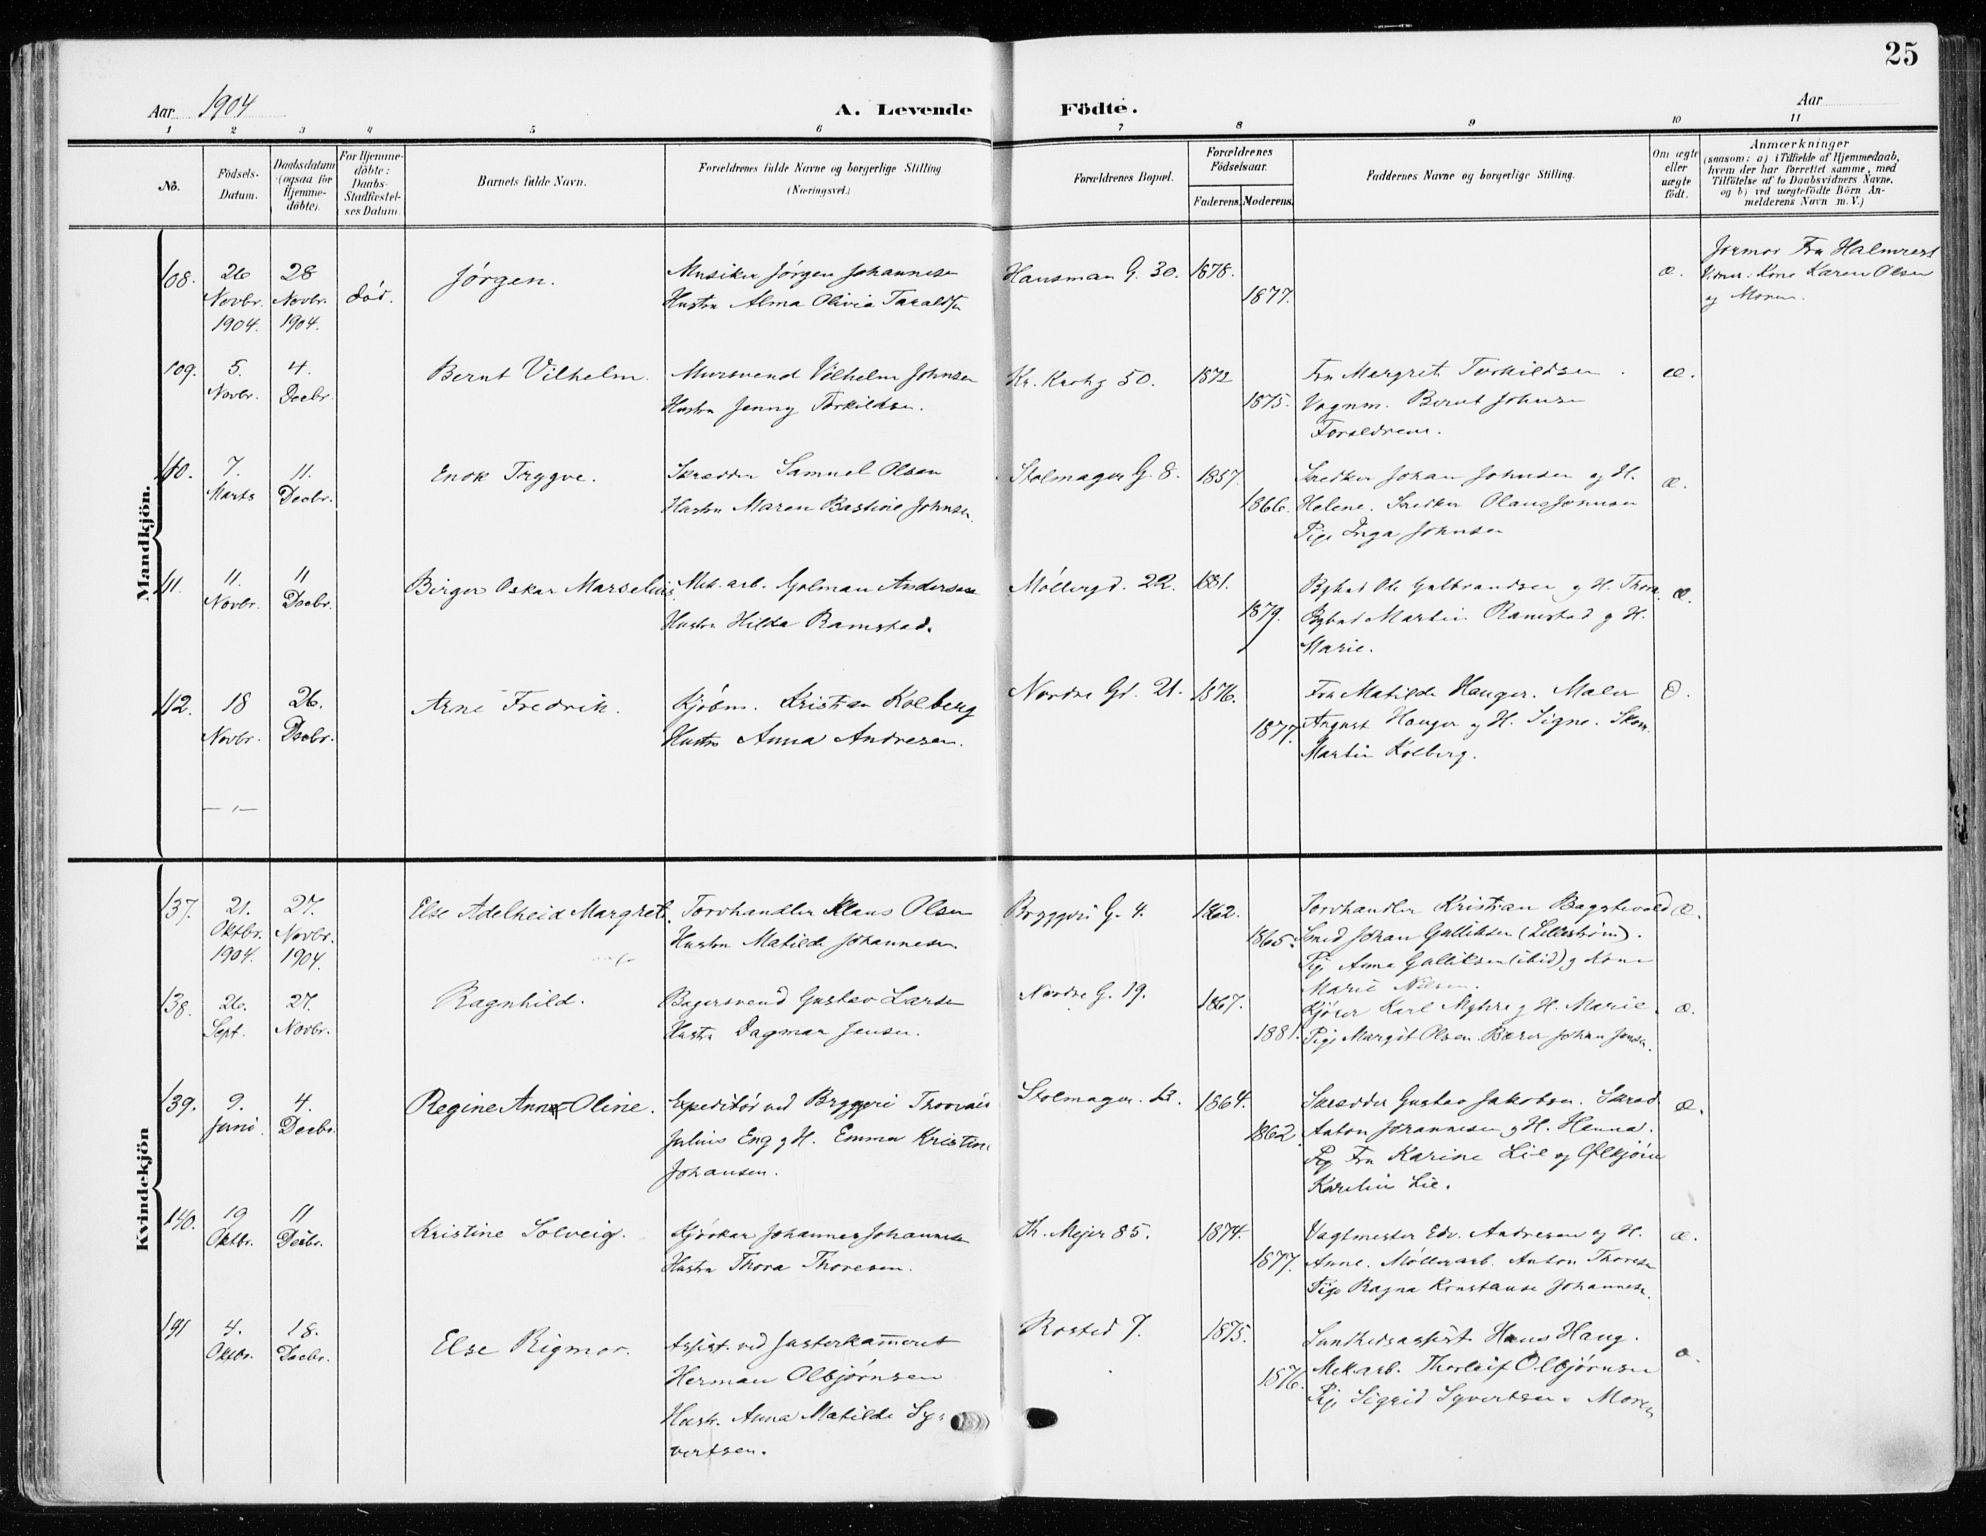 25
Aar 1904
A. Levende Födte.
Aar
1 2 3 4 5 6 7 8 9 10 11
No.
Födsels-
Datum.
Daabsdatum
(ogsaa for
Hjemme-
döbte).
For Hjemme-
döbte:
Daabs-
Stadfæstel-
ses Datum.
Barnets fulde Navn.
Forældrenes fulde Navne og borgerlige Stilling
(Næringsvei.)
Forældrenes Bopæl.
Forældrenes
Födselsaar.
Faderens.
Moderens.
Faddernes Navne og borgerlige Stilling.
Om ægte
eller
uægte
født.
Anmærkninger
(saasom: a) i Tilfælde af Hjemmedaab,
hvem der har forrettet samme, med
Tilføielse af to Daabsvidners Navne,
og b) ved uægtefødte Börn An-
melderens Navn m. V.)
Mandkjön.
108.
26
Novbr.
1904.
28
Novbr.
1904.
död.
Jørgen.
Musiker Jørgen Johannesen
Hustru Alma Olivia Taraldsen
Hausman G. 30.
1878.
1877.
æ.
Jormor Fru
Vidner: Kone Karen Olsen
og Moren.
109.
5.
Novbr.
4.
Decbr.
Bernt Vilhelm.
Mursvend Vilhelm Johnsen
Hustru Jenny Torkildsen.
Kr. Krohg 50.
1872
1875.
Fru Margrit Torkildsen.
Vognm. Bernt Johnsen
Forældrene.
æ.
110.
7.
Marts
11.
Decbr.
Enok Trygve.
Skrædder Samuel Olsen
Hustru Maren Bastine Johnsen.
Stolmager G. 8.
1857.
1866.
Johan Johnsen og H.
Helene.
Pige Inga Johnsen
æ.
111.
11.
Novbr.
11
Decbr.
Birger Oskar Marselius.
Mek. arb. Golman Andersen
Hustru Hilda Ramstad.
Møllergd. 22.
1881.
1879.
Ole Gulbrandsen og H. Thora.
Martin Ramstad og H.
Marie.
æ.
112.
18
Novbr.
26.
Decbr.
Arne Fredrik.
Kjøbm. Kristian Kolberg
Hustru Anna Andresen.
Nordre Gd. 21.
1876.
1877.
Fru Matilde Hauger. Maler
August Hauger og H. Signe.
Martin Kolberg.
Kvindekjön
137.
21.
Oktbr.
1904.
27.
Novbr.
1904.
Else Adelheid Margret.
Torvhandler Klaus Olsen
Hustru Matilde Johannesen
Bryggeri G. 4.
1862.
1865.
Torvhandler Kristian
Smed Johan Gulliksen (Lillestrøm).
Pige Anna Gulliksen (ibid) og Kone
Marie Nilsen.
æ.
138.
26.
Sept.
27.
Novbr.
Ragnhild.
Bagersvend Gustav Larsen
Hustru Dagmar Jensen.
Nordre G. 19.
1867.
1881.
Kjører Karl Myhre og H. Marie.
Pige Margit Olsen. Johan Jensen.
æ.
139.
9.
Juni.
4.
Decbr.
Regine Anne Oline.
Expeditør ved Bryggeri
Julius Eng og H. Emma Kristine
Johansen.
Stolmager. 13.
1864.
1862.
Skrædder Gustav Jakobsen. Skræd.
Anton Johannesen og H. Hanna.
Pig Fru Karine Lie og
Lie.
æ.
140.
19
Oktbr.
11
Decbr.
Kristine Solveig.
Johannes Johannesen
Hustru Thora Thoresen.
Th. Mejer 85.
1874.
1877.
Vagtmester Edv. Andresen og H.
Anne. Møllerarb. Anton Thoresen
Pige Ragna Konstanse Johannesen.
æ.
141
4.
Oktbr.
18.
Decbr.
Else Rigmor.
Assist. ved Justerkammeret
Herman Olbjørnsen
Hustr. Anna Matilde Sy-
vertsen.
Rosted 7.
1875.
1876.
Sundhedsassist. Hans Haug.
Mekarb. Thorleif Olbjørnsen
Pige Sigrid Syvertsen. Moren
æ.